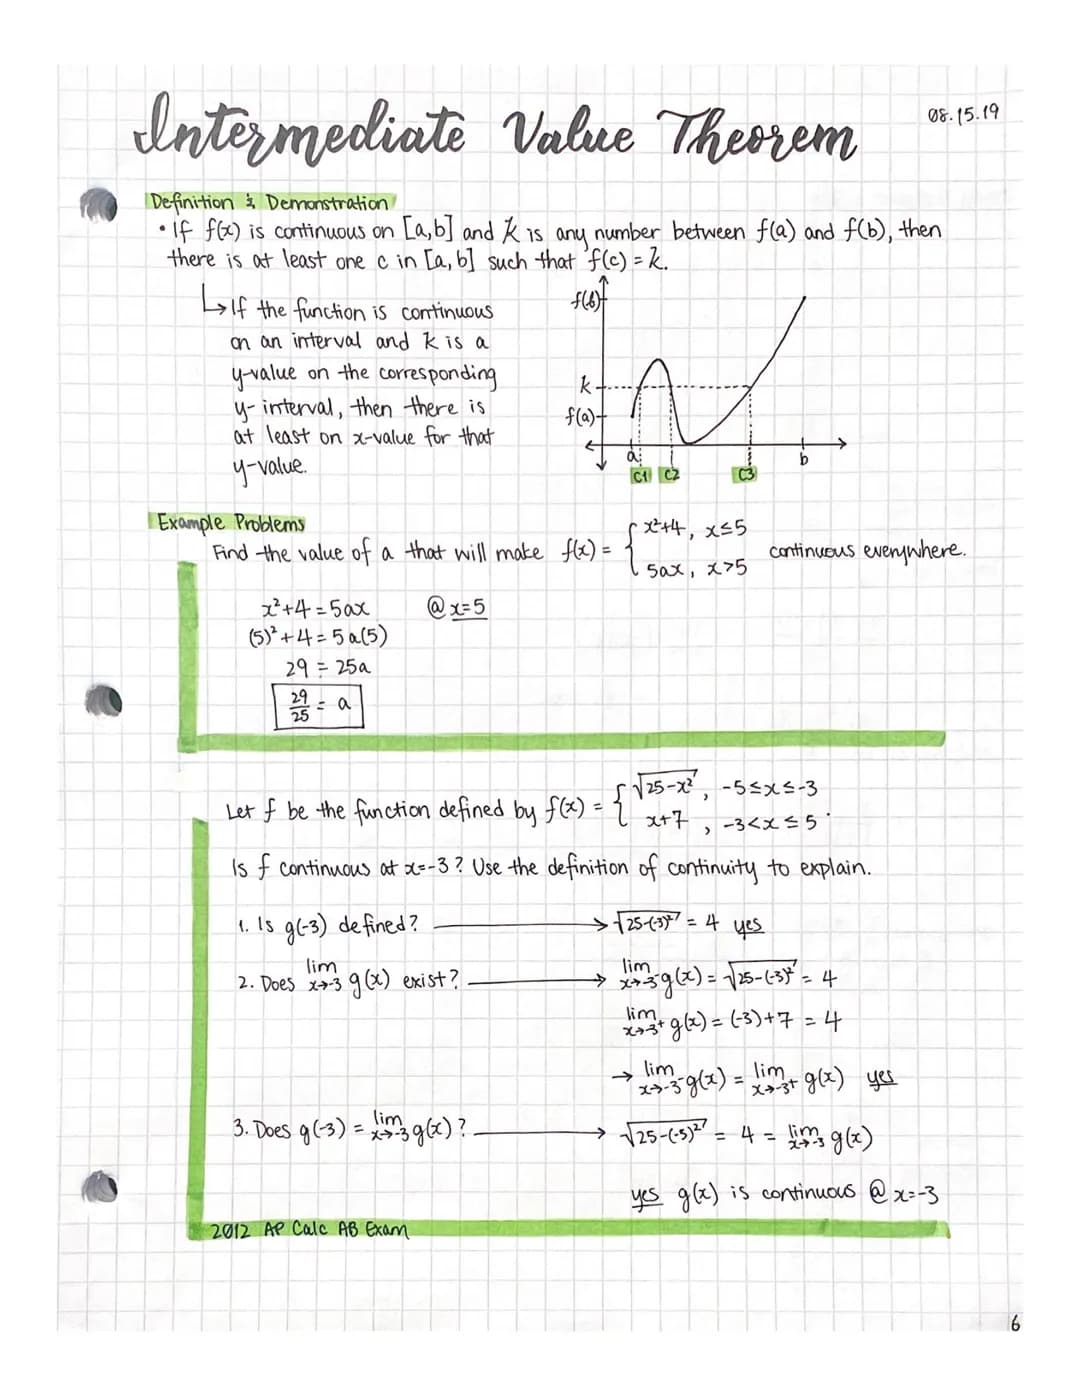 Intermediate Value Theorem
08.15.19
Definition & Demonstration
• If f(x) is continuous on [a,b] and k is any number between f(a) and f(b), then
there is at least one c in [a,b] such that f(c) = k.
↳ If the function is continuous
on an interval and k is a
y-value on the corresponding
y-interval, then there is
at least on x-value for that
y-value.
f(b)
k
f(a)
a
b
C1 C2 C3
Example Problems
Find the value of a that will make f(x) = { x²+4, x≤5
5ax, x>5
continuous everywhere.
x²+4 = 5ax @ x=5
(5)²+4 = 5a(5)
29 = 25a
29/25 = a
Let f be the function defined by f(x) = { √25-x², -5≤x≤-3
x+7, -3<x≤5.
Is f continuous at x=-3? Use the definition of continuity to explain.
1. Is g(-3) defined? → √25-(-3)² = 4 yes
2. Does lim x→-3 g(x) exist? → lim x→-3⁻ g(x) = √25-(-3)² = 4
lim x→-3⁺ g(x) = (-3)+7 = 4
→ lim x→-3⁻ g(x) = lim x→-3⁺ g(x) yes
3. Does g(-3) = lim x→-3 g(x)? → √25-(-3)² = 4 = lim x→-3 g(x)
yes g(x) is continuous @ x=-3
2012 AP Calc AB Exam
6